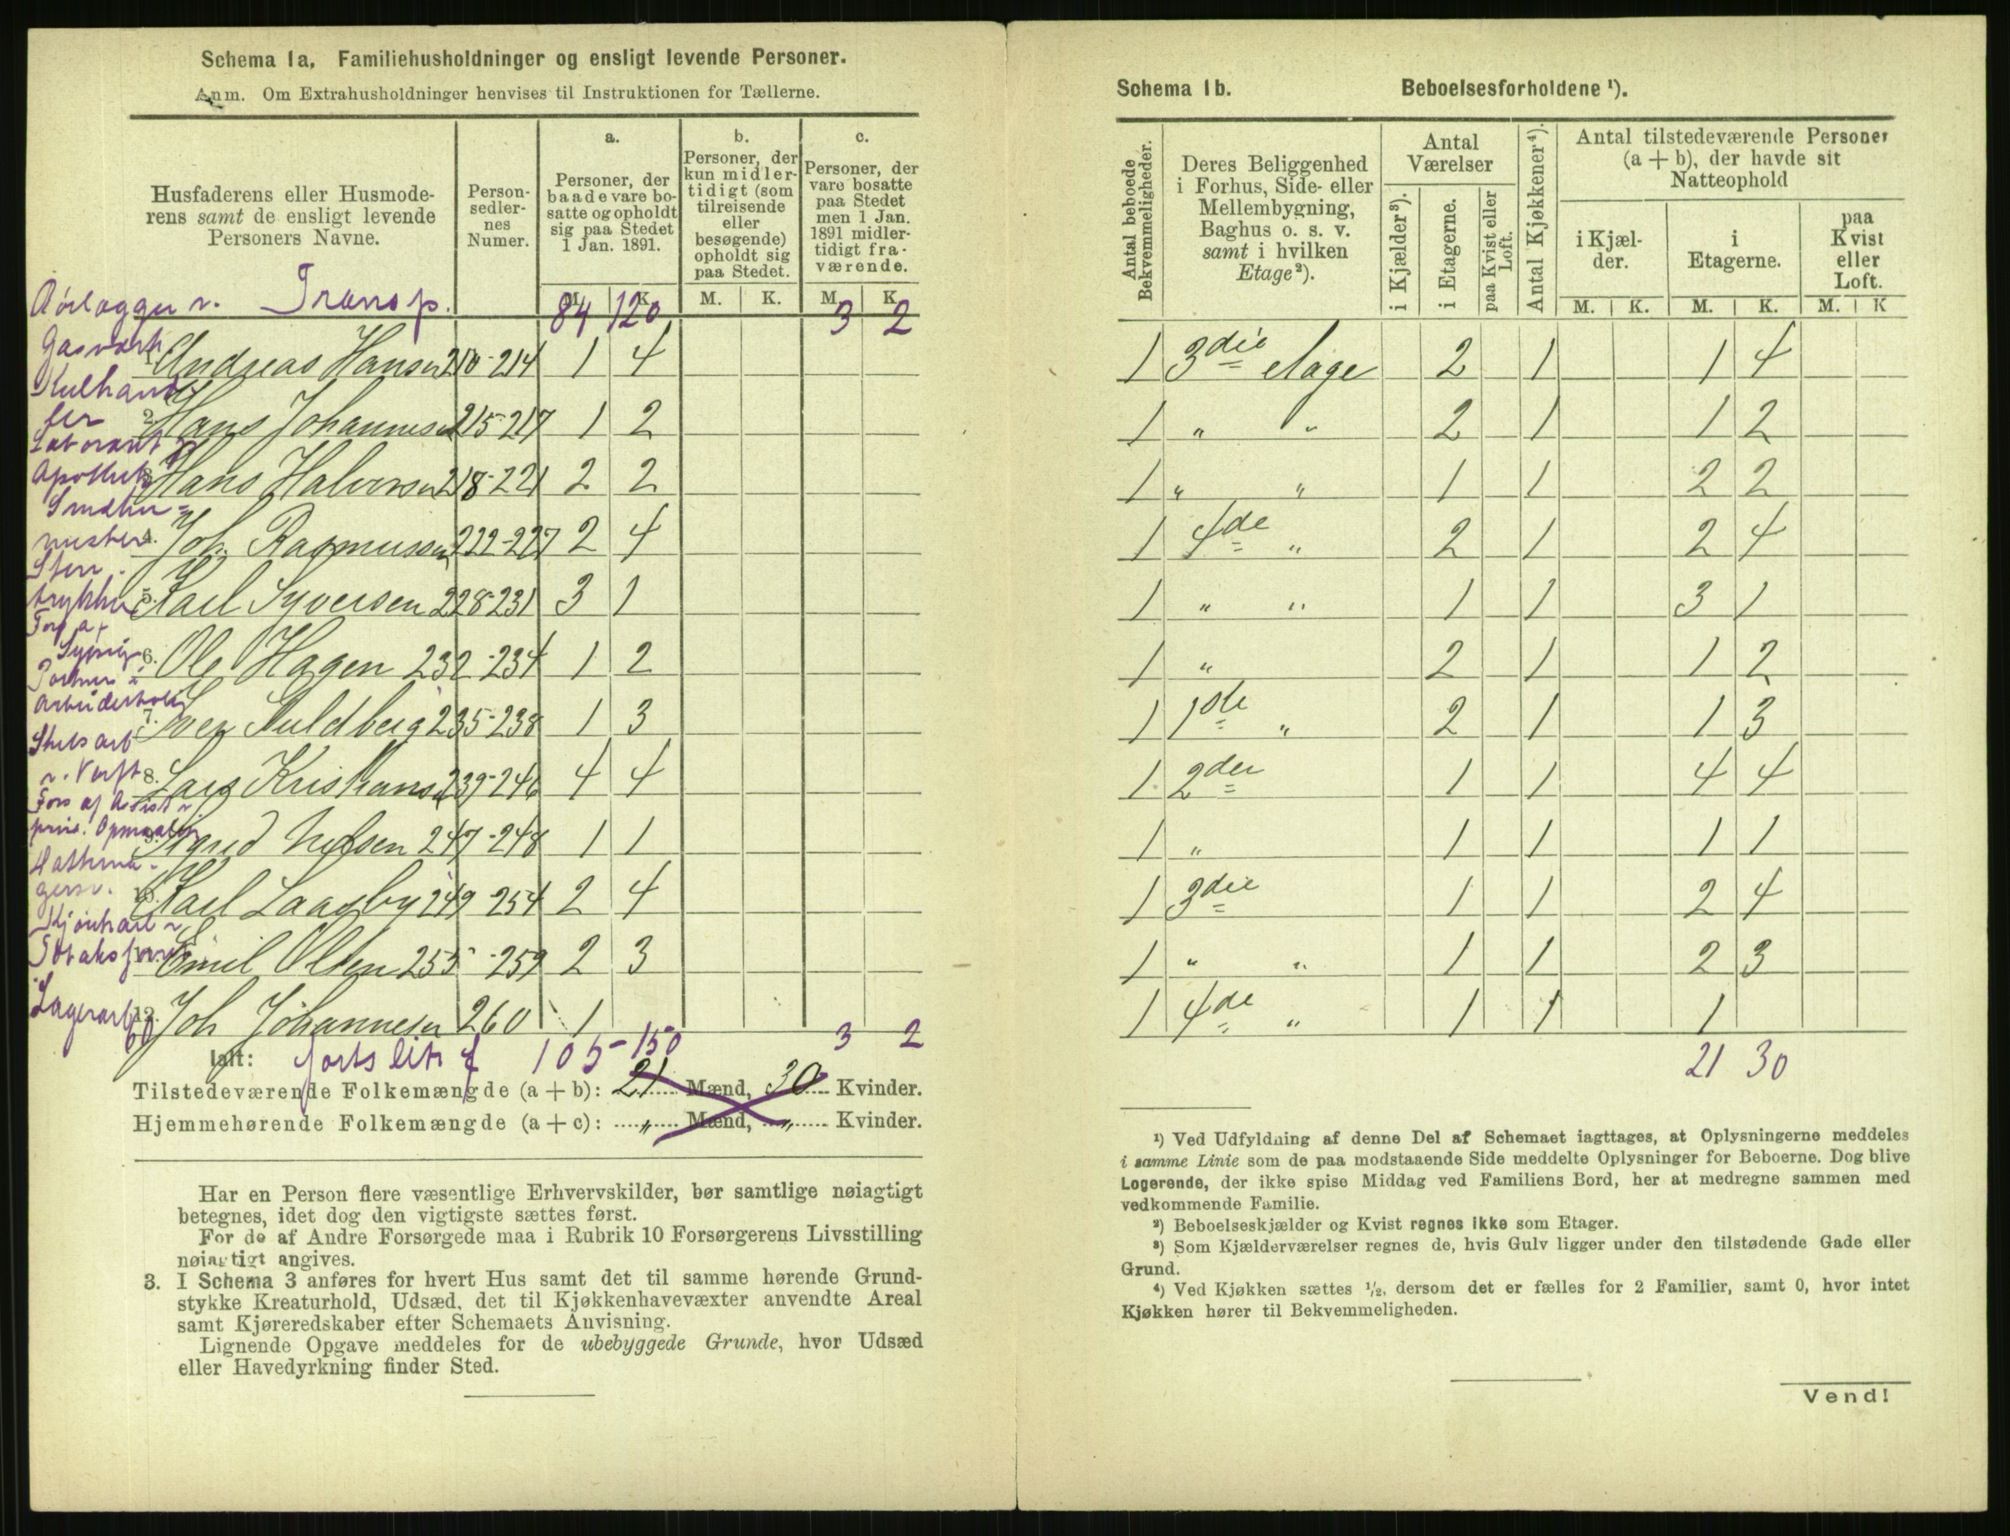 Schema 1a. Familiehusholdninger og ensligt levende Personer.
Anm. Om Extrahusholdninger henvises til Instruktionen for Tællerne.
Husfaderens eller Husmode-
rens samt de ensligt levende
Personers Navne.
Person-
sedler-
nes
Numer.
a.
Personer, der
baade vare bo-
satte og opholdt
sig paa Stedet
1 Jan. 1891.
b.
Personer, der
kun midler-
tidigt (som
tilreisende
eller
besøgende)
opholdt sig
paa Stedet.
c.
Personer, der
vare bosatte
paa Stedet
men 1 Jan.
1891 midler-
tidigt fra-
værende.
M. K. M. K. M. K.
Transp. 84 120 3 2
1. Andreas Hansen 210-214 1 4
2. Hans Johannesen 215-217 1 2
3. Hans Halvorsen 218-221 2 2
4. Joh. Rasmussen 222-227 2 4
5. Karl Syversen 228-231 3 1
6. Ole Hagen 232-234 1 2
7. Iver Guldberg 235-238 1 3
8. Lars Kristiansen 239-246 4 4
9. Sigrid 247-248 1 1
10. Karl Laasby 249-254 2 4
11. Emil Olsen 255-259 2 3
12. Joh Johannesen 260 1
Ialt: 105-150 3 2
Tilstedeværende Folkemængde (a + b): 21 Mænd, 30 Kvinder.
Hjemmehørende Folkemængde (a + c): " Mænd, " Kvinder.
Har en Person flere væsentlige Erhvervskilder, bør samtlige nøiagtigt
betegnes, idet dog den vigtigste sættes først.
For de af Andre Forsørgede maa i Rubrik 10 Forsørgerens Livsstilling
nøiagtigt angives.
3. I Schema 3 anføres for hvert Hus samt det til samme hørende Grund-
stykke Kreaturhold, Udsæd, det til Kjøkkenhavevæxter anvendte Areal
samt Kjøreredskaber efter Schemaets Anvisning.
Lignende Opgave meddeles for de ubebyggede Grunde, hvor Udsæd
eller Havedyrkning finder Sted.
Schema 1b. Beboelsesforholdene ¹).
Antal beboede
Bekvemmeligheder.
Deres Beliggenhed
i Forhus, Side- eller
Mellembygning,
Baghus o. s. v.
samt i hvilken
Etage ²).
Antal
Værelser
i Kjælder ³).
i Etagerne.
paa Kvist eller
Loft.
Antal Kjøkkener ⁴).
Antal tilstedeværende Personer
(a + b), der havde sit
Natteophold
i Kjæl-
der.
i
Etagerne.
paa
Kvist
eller
Loft.
M. K. M. K. M. K
1 3die etage 2 1 1 4
1 " " 2 1 1 2
1 " " 1 1 2 2
1 4de " 2 1 2 4
1 " " 1 1 3 1
1 " 2 1 1 2
1 1ste " 2 1 1 3
1 2den 1 1 4 4
1 " 1 1 1 1
1 3die 1 1 2 4
1 " " 1 1 2 3
1 4de " 1 1 1
21 30
¹) Ved Udfyldning af denne Del af Schemaet iagttages, at Oplysningerne meddeles
i samme Linie som de paa modstaaende Side meddelte Oplysninger for Beboerne. Dog blive
Logerende, der ikke spise Middag ved Familiens Bord, her at medregne sammen med
vedkommende Familie.
²) Beboelseskjælder og Kvist regnes ikke som Etager.
³) Som Kjælderværelser regnes de, hvis Gulv ligger under den tilstødende Gade eller
Grund.
⁴) Ved Kjøkken sættes ¹/₂, dersom det er fælles for 2 Familier, samt 0, hvor intet
Kjøkken hører til Bekvemmeligheden.
Vend!